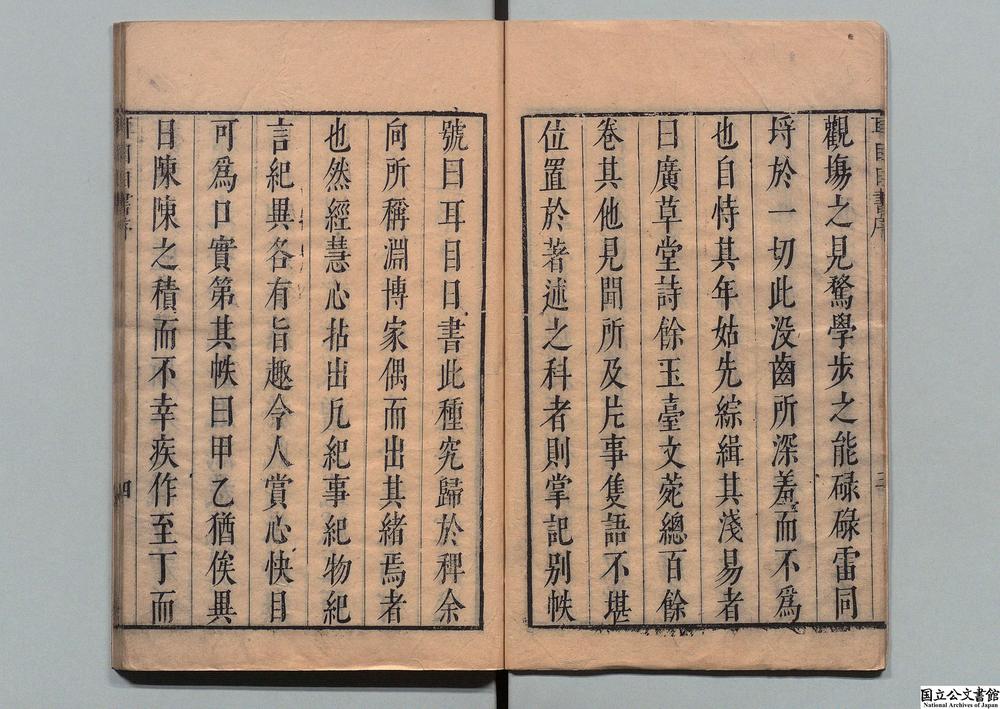 觀塲之見騖學步之能碌碌雷同
埒於一切此没齒所深羞而不爲
也自恃其年姑先綜緝其淺易者
曰廣草堂詩餘玉臺文菀總百餘
卷其他見聞所及片事隻語不堪
位置於著述之科者則掌記别帙
號曰耳目日書此種究歸於稗余
向所稱淵博家偶而出其緒焉者
也然經慧心拈出凡紀事紀物紀
言紀異各有旨趣令人賞心快目
可爲口實第其帙曰甲乙猶俟異
日陳陳之積而不幸疾作至丁而
四
国立公文書館
National Archives of Japan